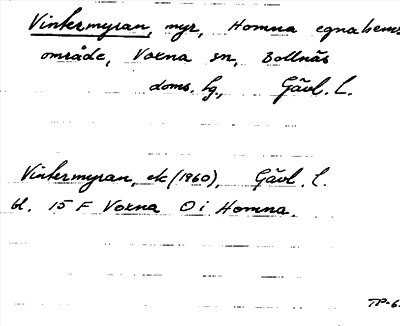 Vintermyran, myr, Homna egnahems
område, Voxna sn, Bollnäs
doms. sg., Gävl. L.
Vintermyran, ek (1960), Gävl. l.
bl. 15 F Voxna O i Homna.
TP-6